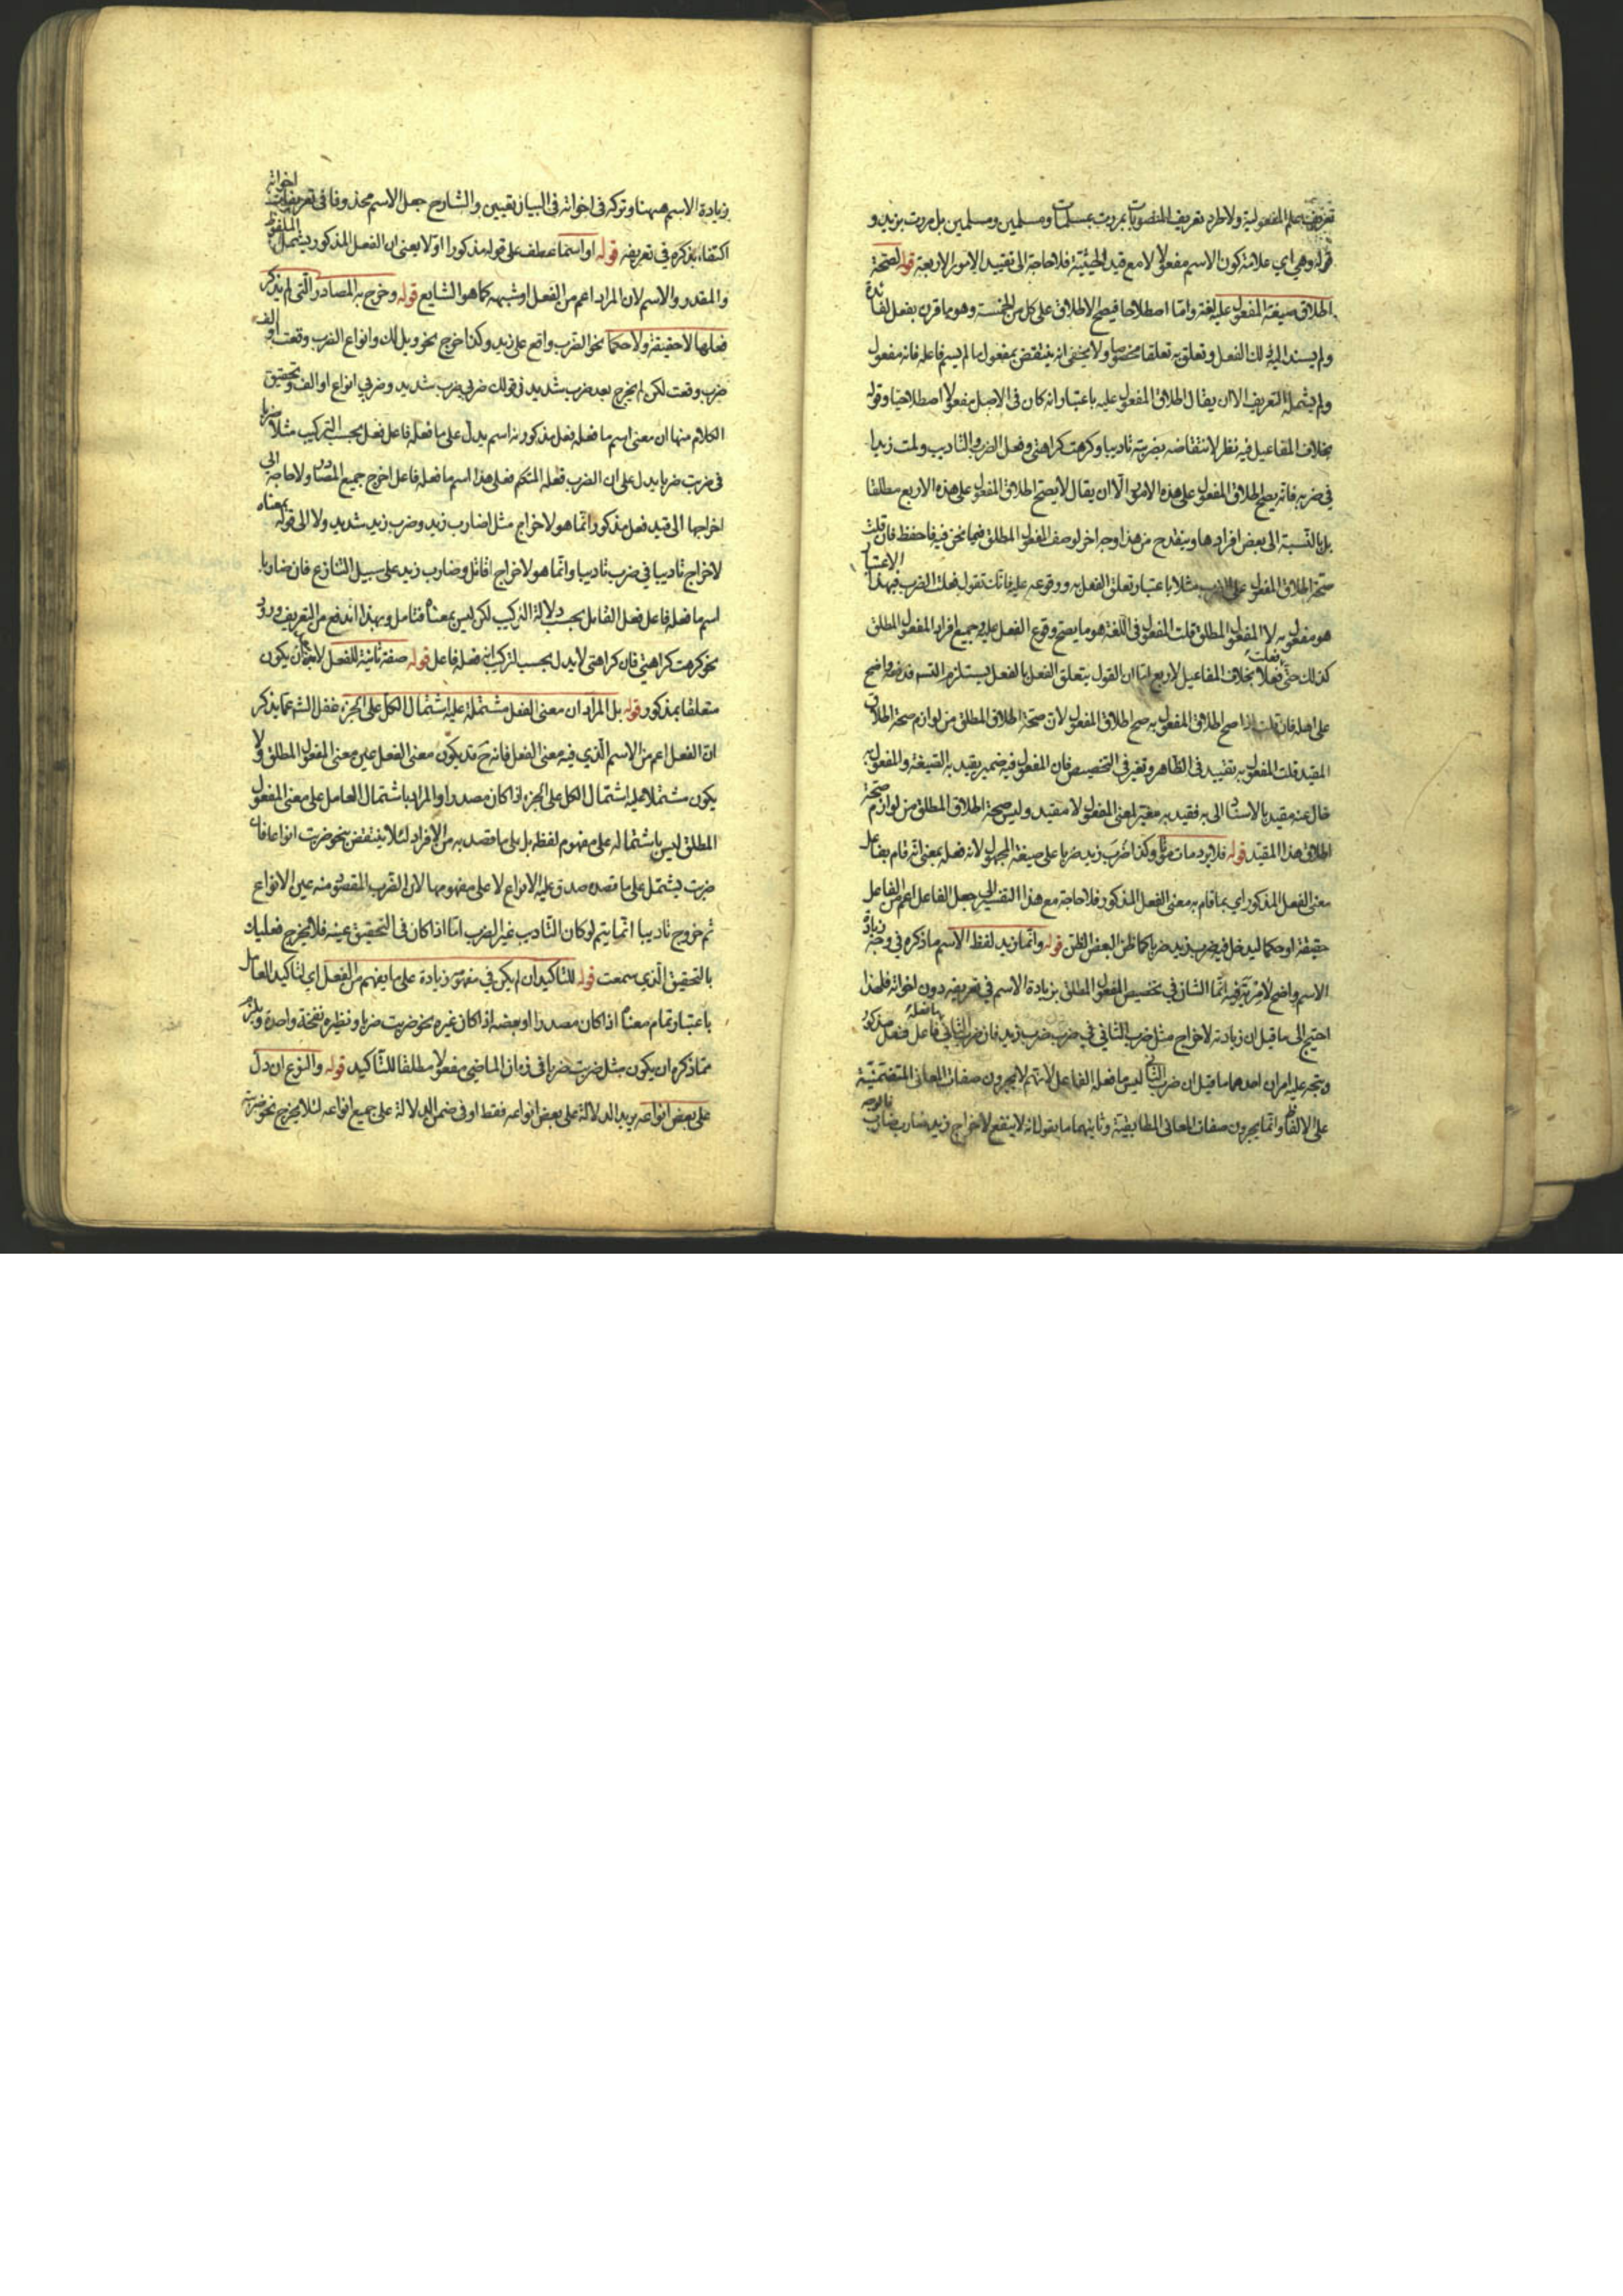 تعريف علم المفعولية ولاطرد تعريف المنصوبات بمررت بمسلمات ومسلمين ومسلمين بل مررت بزيد و
قوله وهي اي علامة كون الاسم مفعولا لامع قيد الحيثية فلاحاجة الى تقييد الامور الاربعة قوله لصحة
اطلاق صيغة المفعول عليه لغة واما اصطلاحا فيصح الاطلاق على كل من الخمسة وهو ما قرن بفعل لفائدة
ولم يسند اليه ذلك الفعل وتعلق به تعلقا مخصوصا ولا يخفى انه ينتقض بمفعول ما لم يسم فاعله فانه مفعول
ولم يشمله التعريف الا ان يقال اطلاق المفعول عليه باعتبار انه كان في الاصل مفعولا اصطلاحيا وقوله
بخلاف المفاعيل فيه نظر لانتقاضه بضربته تاديبا وكرهت كراهتي وفعل الضرب والتاديب ولمت زيدا
في ضربه فانه يصح اطلاق المفعول على هذه الامور الا ان يقال لا يصح اطلاق المفعول على هذه الاربع مطلقا
بل بالنسبة الى بعض افرادها وينقدح من هذا وجه اخر لوصف المفعول المطلق فيما نحن فيه فاحفظ فان قلت
صحة اطلاق المفعول على الضرب مثلا باعتبار تعلق الفعل به ووقوعه عليه فانك تقول فعلت الضرب فبهذا الاعتبار
هو مفعول به لا المفعول المطلق قلت المفعول في اللغة هو ما يصح وقوع الفعل عليه وجميع افراد المفعول المطلق
كذلك حتى فعلا فعلت بخلاف المفاعيل الاربع اما ان القول بتعلق الفعل بالفعل يستلزم التسـ فدفعه واضح
على اهله فان قلت اذا صح اطلاق المفعول به صح اطلاق المفعول لان صحة اطلاق المطلق من لوازم صحة اطلاق
المقيد قلت المفعول به تقييد في الظاهر وتغير في التخصيص فان المفعول فيه ضمير يقيد به الصيغة والمفعول به
خال عنه مقيد بالاسناد الى به فقيد به مغير لمعنى المفعول لا مقيد وليس صحة اطلاق المطلق من لوازم صحة
اطلاق هذا المقيد قوله فلا يرد مات موتا وكذا ضرب زيد ضربا على صيغة المجهول لانه فعله بمعنى انه قام بفاعل
معنى الفعل المذكور اي بما قام به معنى الفعل المذكور فلاحاجة مع هذا التفسير الى جعل الفاعل اعم من الفاعل
حقيقة او حكما ليدخل فيه ضرب زيد ضربا كما ظن البعض الظن قوله وانما زيد لفظ الاسم ما ذكره في وجه زيادة
الاسم واضح لامرية فيه انما الشان في تخصيص المفعول المطلق بزيادة الاسم في تعريفه دون اخواته فلهذا
احتيج الى ما قيل ان زيادته لاخراج مثل ضرب الثاني في ضرب ضرب زيد فان ضرب الثاني ما فعله فاعل فعل مذكور
ويتجه عليه امران احدهما ما قيل ان ضرب الثاني ليس ما فعله الفاعل لانهم لا يجرون صفات المعاني التضمنية
على الالفاظ وانما يجرون صفات المعاني المطابقية وثانيهما ما يقول انه لا ينفع لاخراج زيد ضارب ضارب
زيادة الاسم ههنا وتركه في اخواته في البيان تعيين والشارح جعل الاسم محذوفا في تعريفات اخواته
اكتفاء بذكره في تعريفه قوله او اسما عطف على قوله مذكورا اولا يعني ان الفعل المذكور يشمل الملفوظ
والمقدر والاسم لان المراد اعم من الفعل او شبهه كما هو الشايع قوله وخرج به المصادر التي لم يذكر
فعلها لا حقيقة ولا حكما نحو الضرب واقع على زيد وكذا خرج نحو ويل لك وانواع الضرب وقعت والف
ضرب وقعت لكن لم يخرج بعد ضرب شديد في قولك ضربي ضرب شديد وضربي انواع او الف وتحقيق
الكلام منها ان معنى اسم ما فعله فعل مذكور انه اسم يدل على ما فعله فاعل فعل بحسب التركيب مثلا ضربا
في ضربت ضربا يدل على ان الضرب فعله المتكلم فعلى هذا اسم ما فعله فاعل اخرج جميع المصادر ولا حاجة الى
اخراجها الى قيد فعل مذكور وانما هو لاخراج مثل اضارب زيد وضرب زيد شديد ولا الى قوله بمعناه
لاخراج تاديبا في ضرب تاديبا وانما هو لاخراج اقاتل وضارب زيد على سبيل التنازع فان ضاربا
اسم ما فعله فاعل فعل القاتل بحسب دلالة التركيب لكن ليس بمعناه فتامل وبهذا اندفع من التعريف ورود
نحو كرهت كراهتي فان كراهتي لا يدل بحسب التركيب انه فعله فاعل قوله صفة ثانية للفعل لا يجوز ان يكون
متعلقا بمذكور قوله بل المراد ان معنى الفعل مشتملة عليه اشتمال الكل على الجزء غفل الشـ عما يذكر
ان الفعل اعم من الاسم الذي فيه معنى الفعل فانه ح قد يكون معنى الفعل عين معنى المفعول المطلق ولا
يكون مشتملا عليه اشتمال الكل على الجزء اذا كان مصدرا والمراد باشتمال العامل على معنى المفعول
المطلق ليس باشتماله على مفهوم لفظه بل على ما قصد به من الافراد لئلا ينتقض بنحو ضربت انواعا فان
ضربت يشتمل على ما قصد صدق عليه الانواع لا على مفهومها لان الضرب المقصود منه عين الانواع
ثم خروج تاديبا انما يتم لو كان التاديب غير الضرب اما اذا كان في التحقيق عينه فلا يخرج فعليك
بالتحقيق الذي سمعت قوله للتاكيد ان لم يكن في مفهومه زيادة على ما يفهم من الفعل اي لتاكيد العامل
باعتبار تمام معناه اذا كان مصدرا او بعضه اذا كان غيره نحو ضربت ضربا ونظيره نفخة واحدة ويلزم
مما ذكره ان يكون مثل ضربت ضربا في زمان الماضي مفعولا مطلقا للتاكيد قوله والنوع ان دل
على بعض انواعه يريد الدلالة على بعض انواعه فقط او في ضمن الدلالة على جميع انواعه لئلا يخرج نحو ضربته